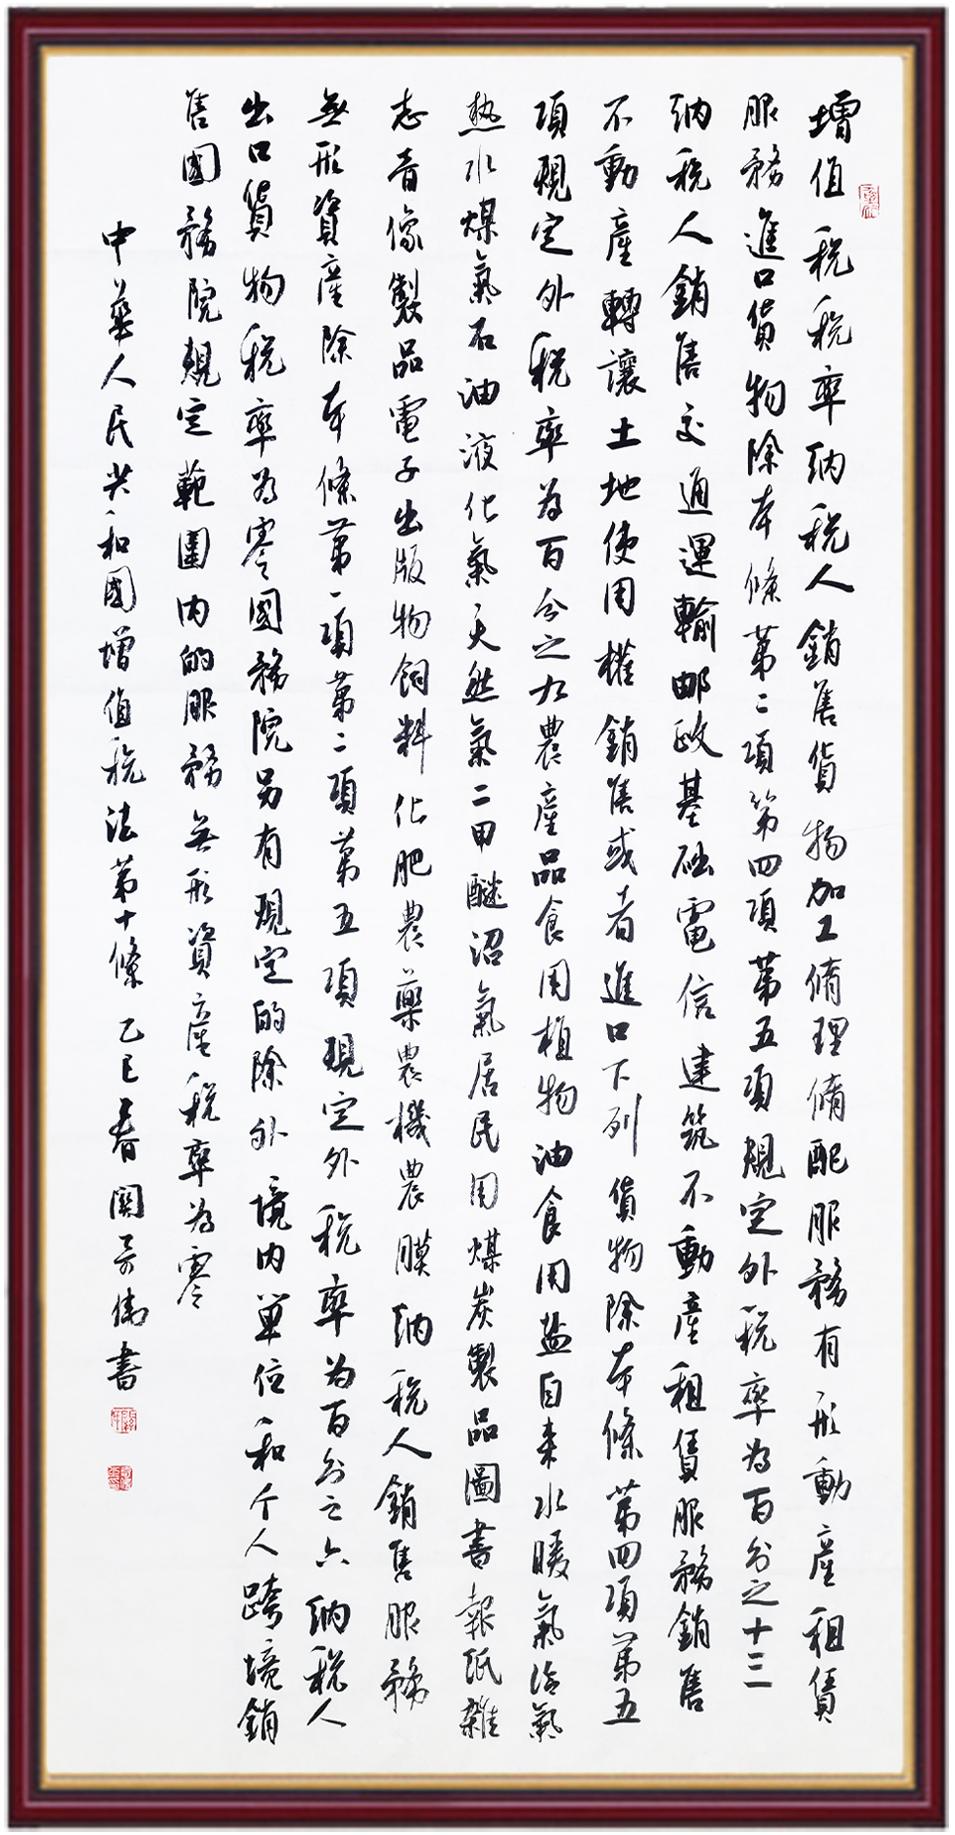 增值稅稅率納稅人銷售貨物加工脩理脩配服務有形動產租賃
服務進口貨物除本條第二項第四項第五項規定外稅率為百分之十三
納稅人銷售交通運輸郵政基础電信建筑不動產租賃服務銷售
不動產轉讓土地使用權銷售或者進口下列貨物除本條第四項第五
項規定外稅率為百分之九農產品食用植物油食用盐自來水暖氣冷氣
熱水煤氣石油液化氣天然氣二甲醚沼氣居民用煤炭製品圖書報紙雜
志音像製品電子出版物飼料化肥農藥農機農膜納稅人銷售服務
無形資產除本條第一項第二項第五項規定外稅率為百分之六納稅人
出口貨物稅率為零國務院另有規定的除外境內單位和个人跨境銷
售國務院規定範圍內的服務無形資產稅率為零
中華人民共和國增值稅法第十條 乙巳春關書